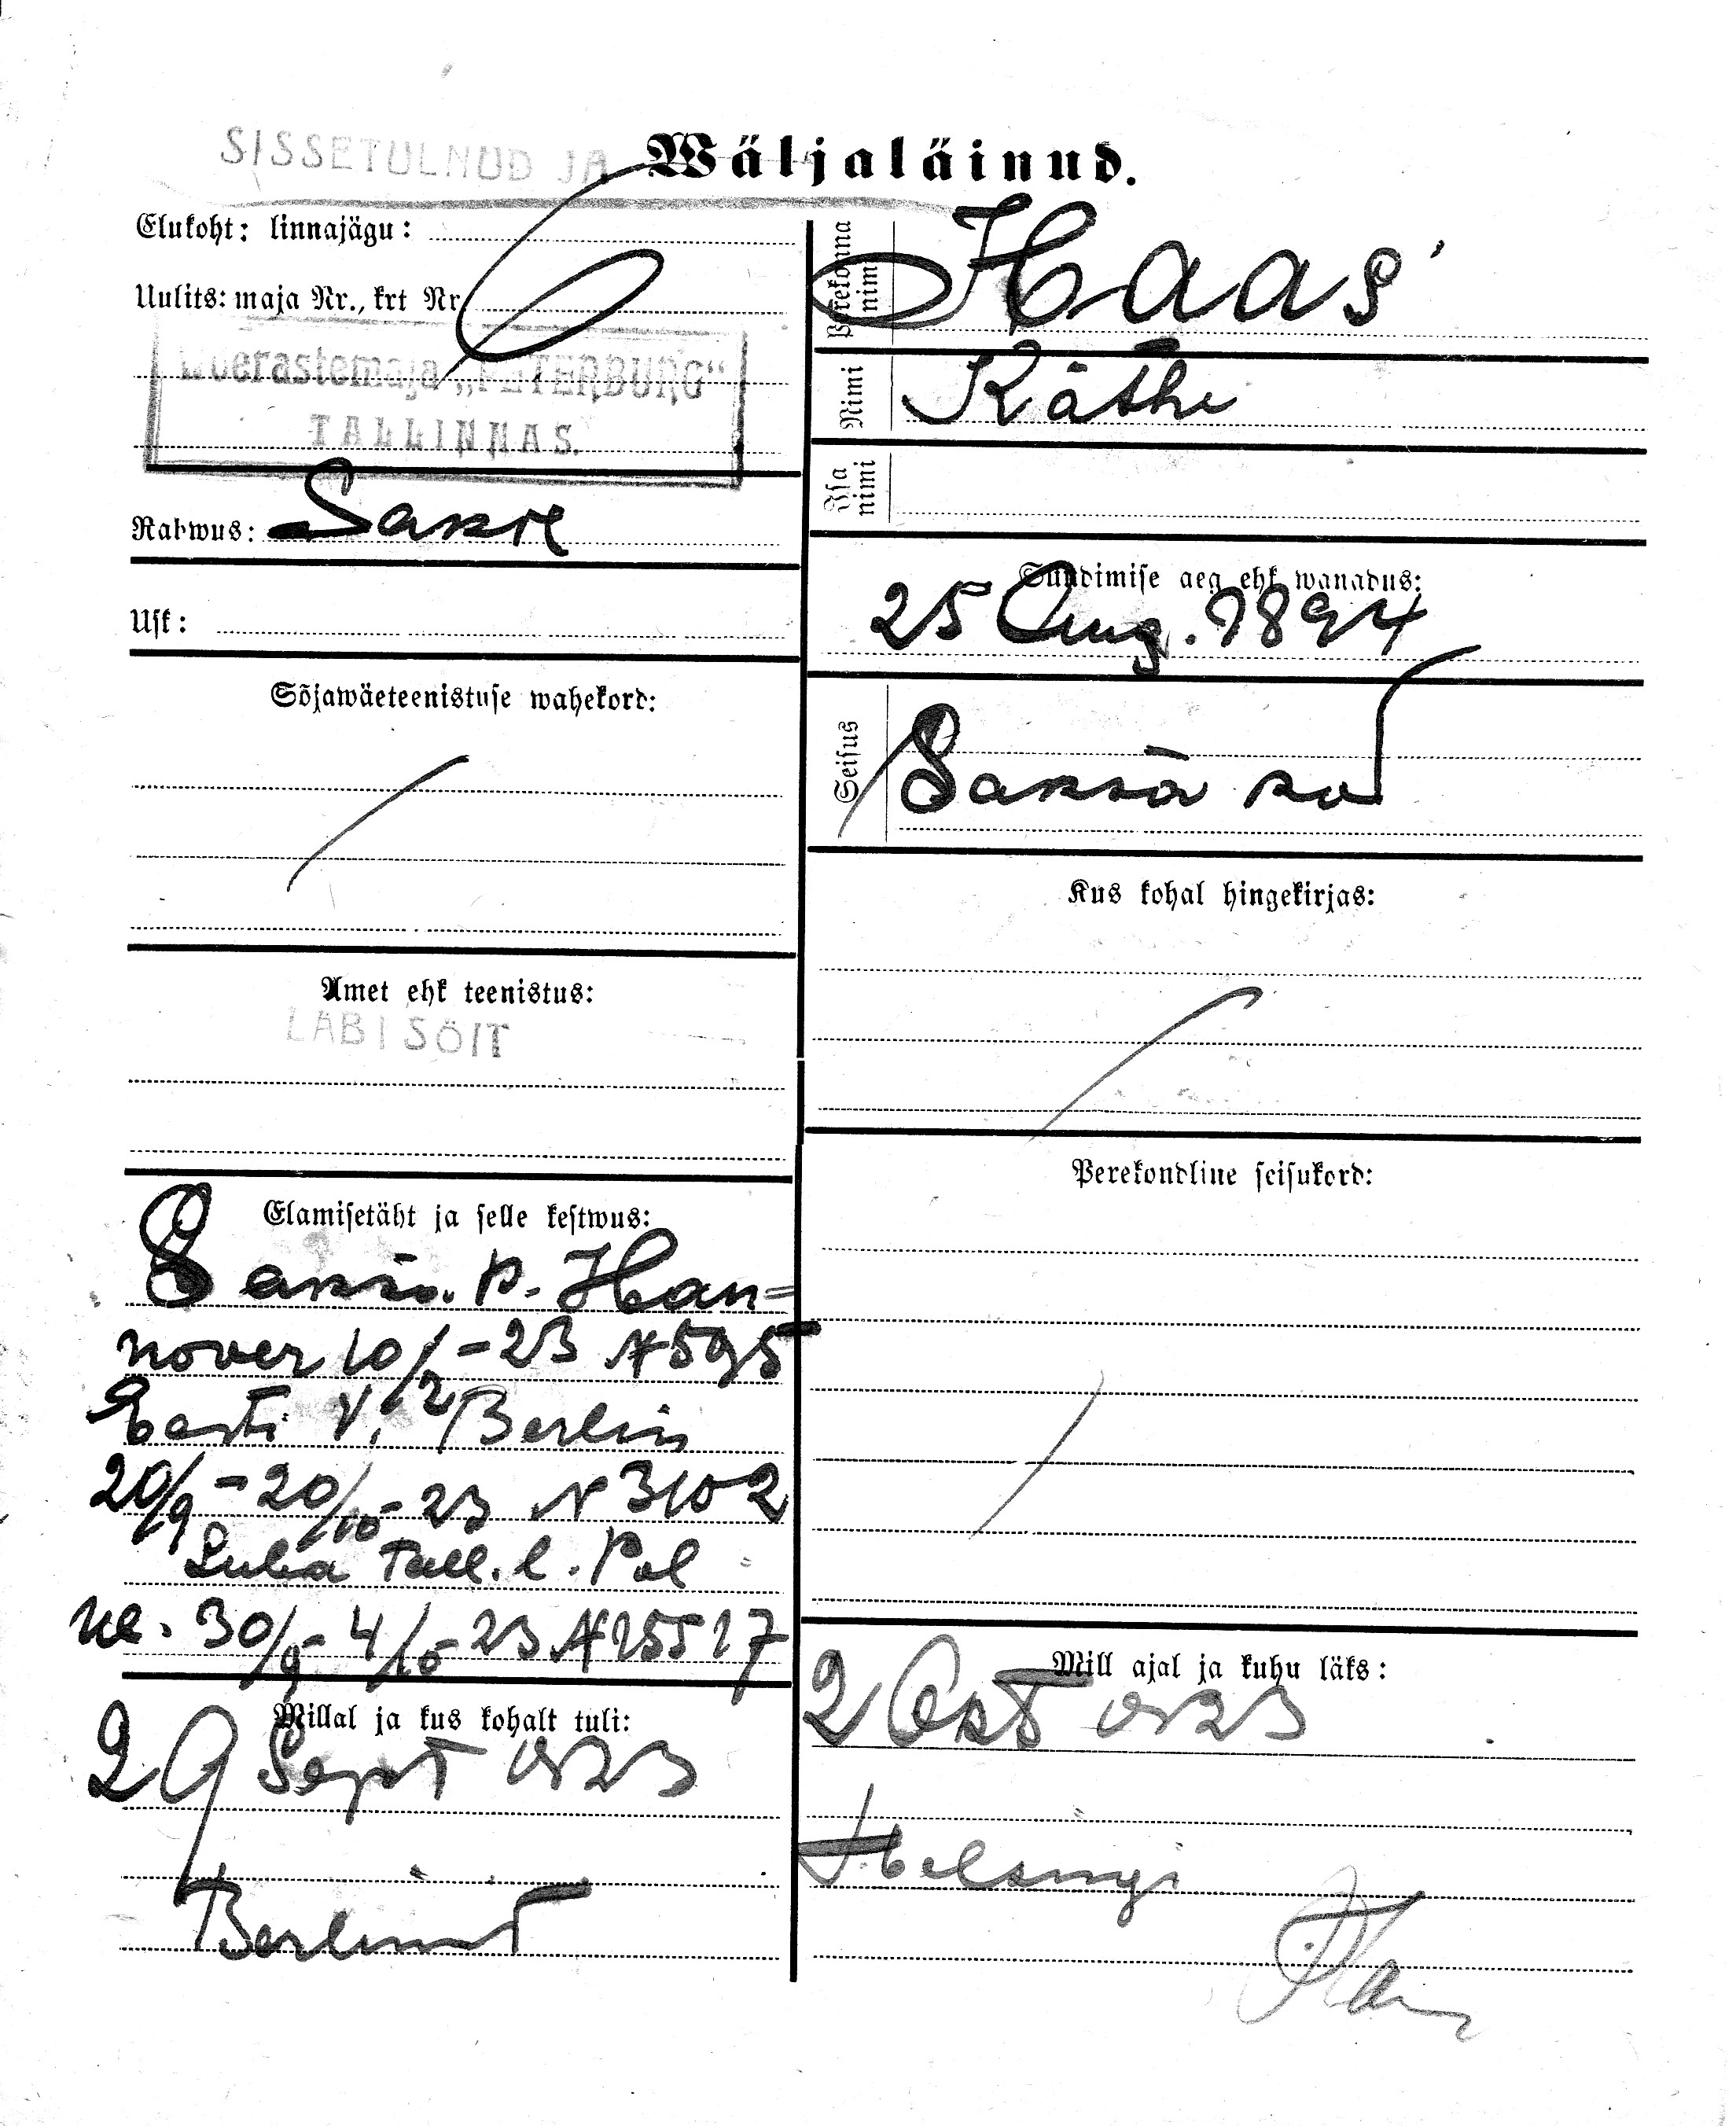 SISSETULNUD JA Wäljaläinud.
Elukoht: linnajägu:
Uulits: maja Nr., krt Nr.
Woerastemaja „PETERBURG“
TALLINNAS.
Rahwus: Saksa
Usk:
Sõjawäeteenistuse wahekord:
Amet ehk teenistus:
LÄBISÕIT
Elamisetäht ja selle kestwus:
Saksa. p. Han=
nover 10/2-23 N 595
Eesti V. Berlin
20/9-20/10-23 N 3102
Luba Tall. l. Pol
30/9-4/10-23 N 25517
Millal ja kus kohalt tuli:
29 Sept 1923
Berlinist
Perekonna nimi Haas
Nimi Käthe
Isa nimi
Sündimise aeg ehk wanadus:
25 Aug. 1894
Seisus Saksa kod
Kus kohal hingekirjas:
Perekondline seisukord:
Mill ajal ja kuhu läks:
2 Okt 1923
Helsingi